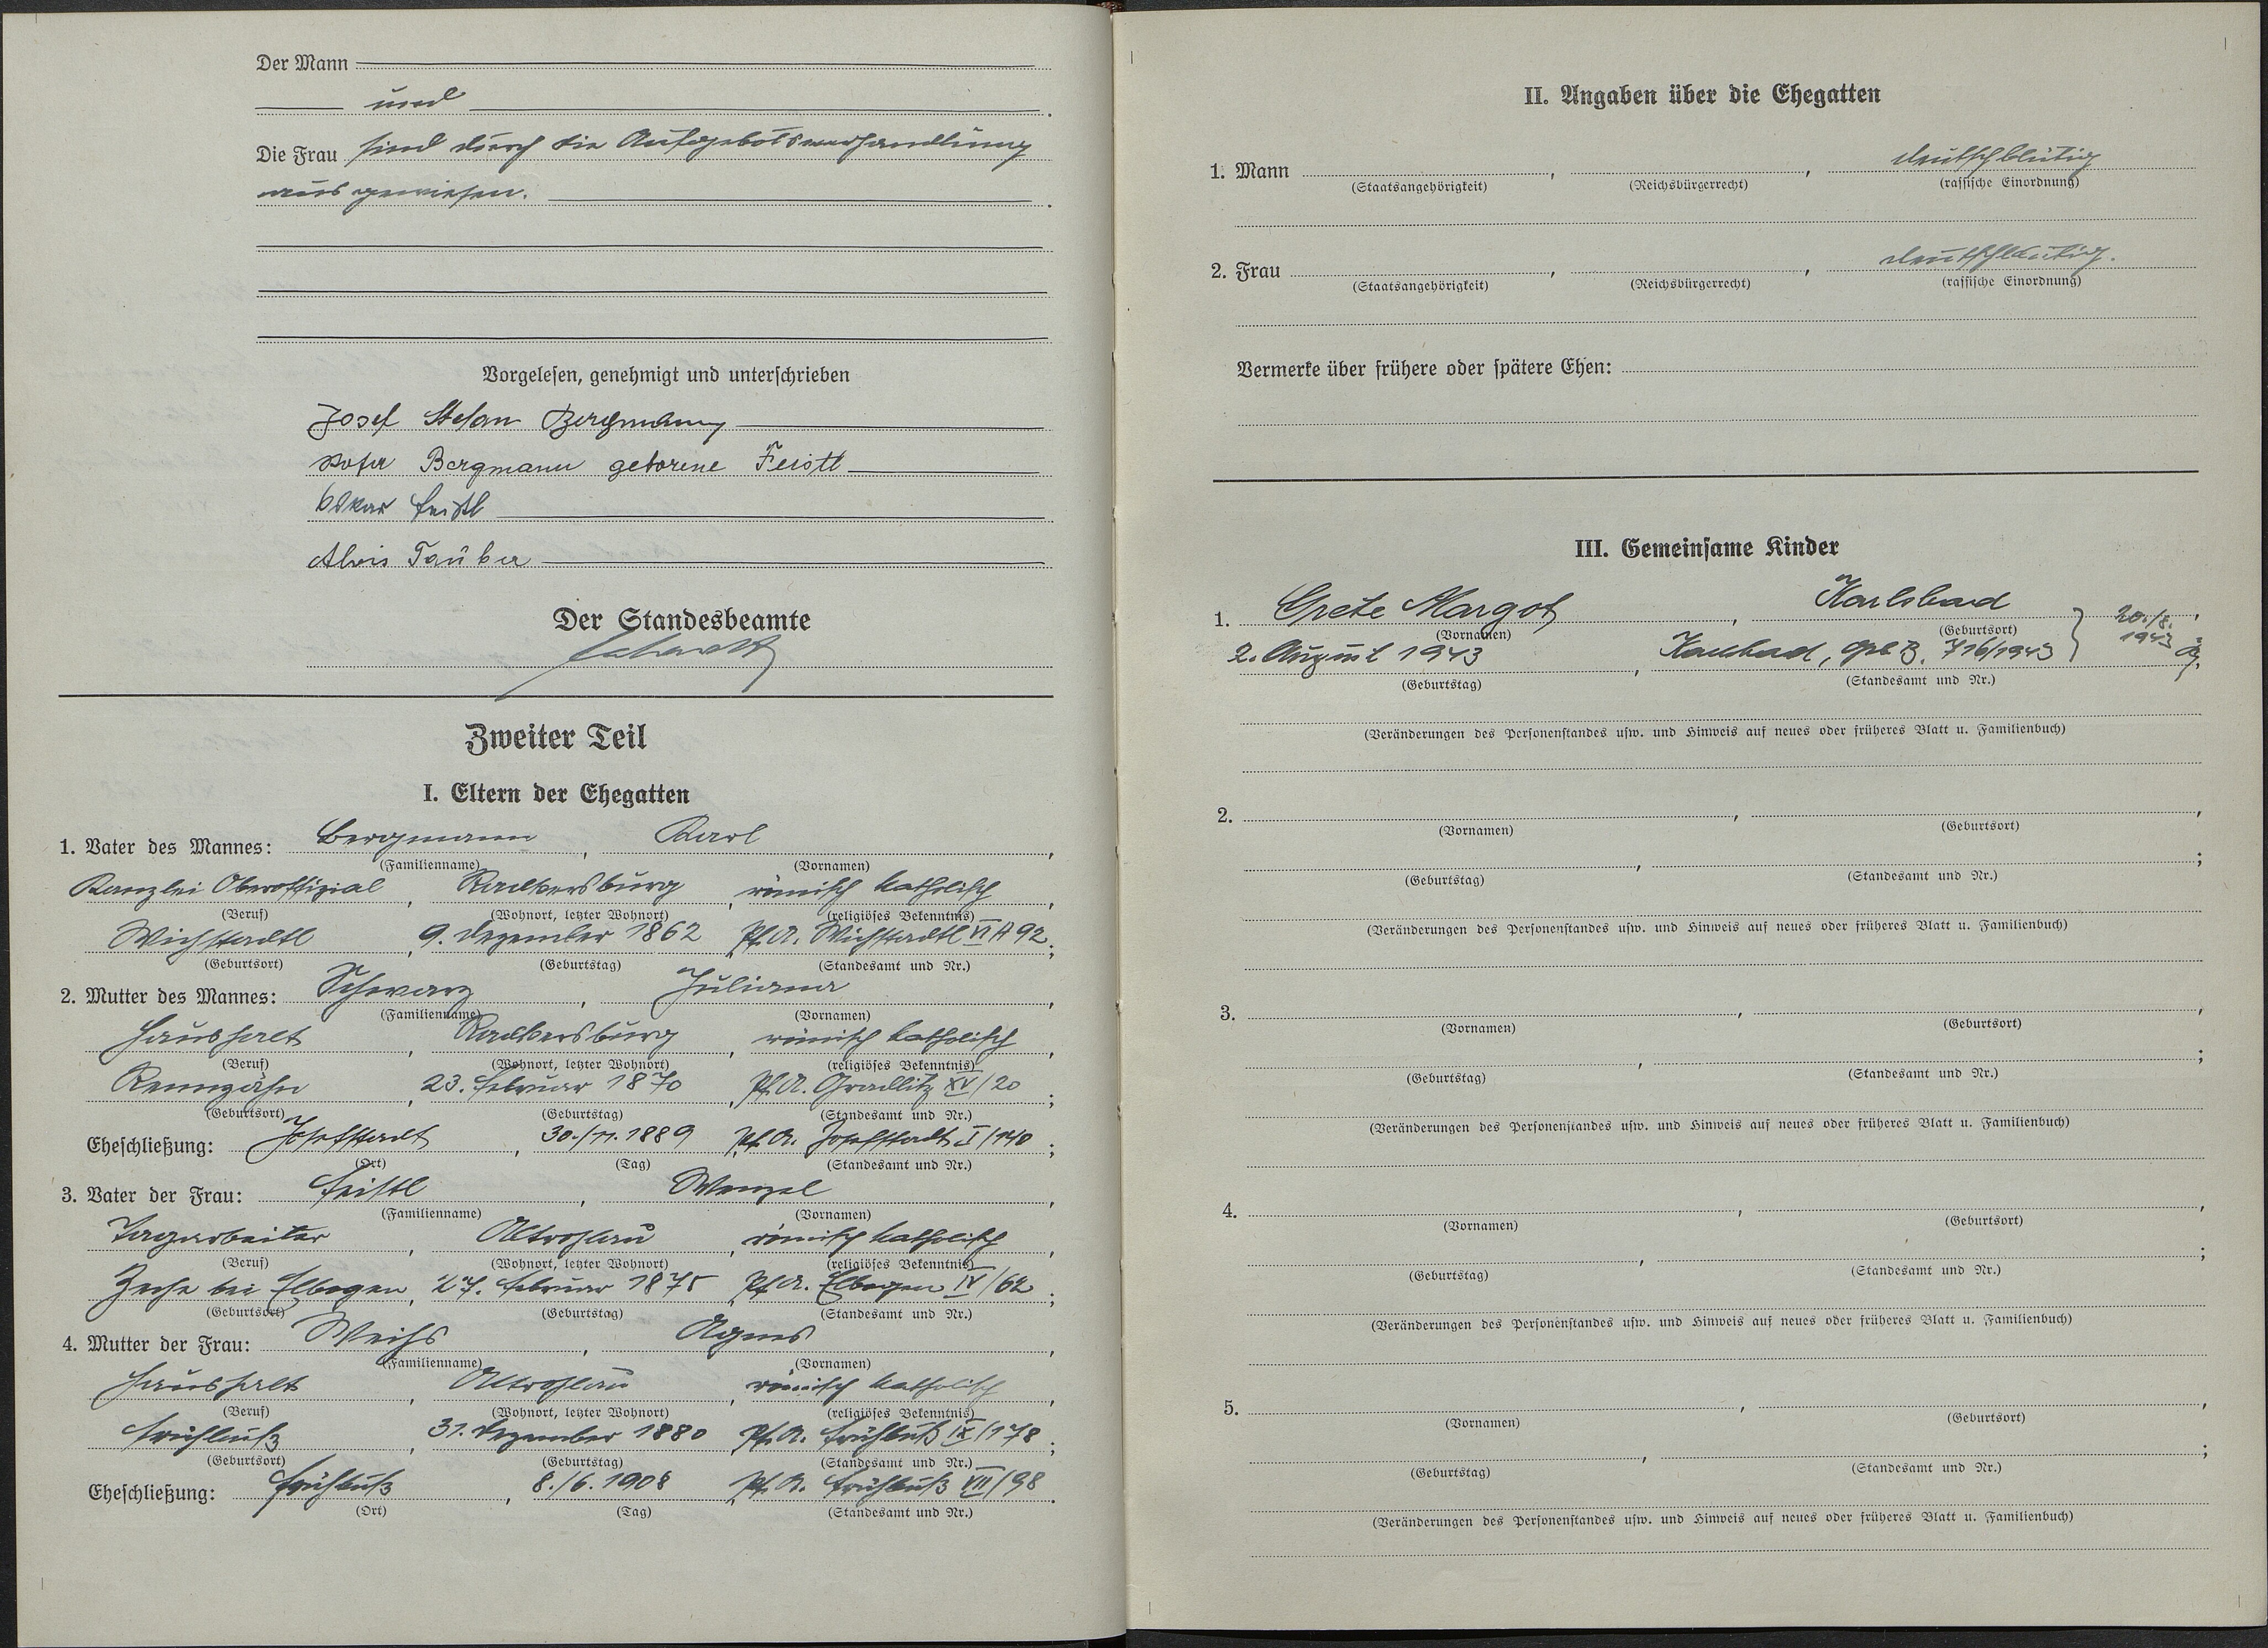 Der Mann
und
Die Frau sind durch die Aufgebotsverhandlung
ausgewiesen.
Vorgelesen, genehmigt und unterschrieben
Josef Stefan Bergmann
Bergmann geborene Feistl
Oskar Feistl
Alois Täuber
Der Standesbeamte
Zweiter Teil
I. Eltern der Ehegatten
1. Vater des Mannes: Bergmann, Karl,
(Familienname) (Vornamen)
Kanzlei Oberoffizial, Radkersburg, römisch katholisch,
(Beruf) (Wohnort, letzter Wohnort) (religiöses Bekenntnis)
Wichstadtl, 9. Dezember 1862, Pf. A. Wichstadtl VI A 92;
(Geburtsort) (Geburtstag) (Standesamt und Nr.)
2. Mutter des Mannes: Schwarz, Juliana,
(Familienname) (Vornamen)
Haushalt, Radkersburg, römisch katholisch,
(Beruf) (Wohnort, letzter Wohnort) (religiöses Bekenntnis)
Rennzähn, 23. Februar 1870, Pf. A. Gradlitz XV/20;
(Geburtsort) (Geburtstag) (Standesamt und Nr.)
Eheschließung: Josefstadt, 30./11. 1889, Pf. A. Josefstadt I/140;
(Ort) (Tag) (Standesamt und Nr.)
3. Vater der Frau: Feistl, Wenzel,
(Familienname) (Vornamen)
Tagarbeiter, Altrohlau, römisch katholisch,
(Beruf) (Wohnort, letzter Wohnort) (religiöses Bekenntnis)
Zeche bei Elbogen, 27. Februar 1875, Pf. A. Elbogen IV/62;
(Geburtsort) (Geburtstag) (Standesamt und Nr.)
4. Mutter der Frau: Weihs, Agnes,
(Familienname) (Vornamen)
Haushalt, Altrohlau, römisch katholisch,
(Beruf) (Wohnort, letzter Wohnort) (religiöses Bekenntnis)
Frühbuß, 31. Dezember 1880, Pf. A. Frühbuß IX/178;
(Geburtsort) (Geburtstag) (Standesamt und Nr.)
Eheschließung: Frühbuß, 8./6. 1908, Pf. A. Frühbuß VII/98.
(Ort) (Tag) (Standesamt und Nr.)
II. Angaben über die Ehegatten
1. Mann , , deutschblütig
(Staatsangehörigkeit) (Reichsbürgerrecht) (rassische Einordnung)
2. Frau , , deutschblütig.
(Staatsangehörigkeit) (Reichsbürgerrecht) (rassische Einordnung)
Vermerke über frühere oder spätere Ehen:
III. Gemeinsame Kinder
1. Grete Margot, Karlsbad,
(Vornamen) (Geburtsort)
2. August 1943, Karlsbad, Geb B. 716/1943 } 20./8. 1943
(Geburtstag) (Standesamt und Nr.)
(Veränderungen des Personenstandes usw. und Hinweis auf neues oder früheres Blatt u. Familienbuch)
2. , ,
(Vornamen) (Geburtsort)
, ;
(Geburtstag) (Standesamt und Nr.)
(Veränderungen des Personenstandes usw. und Hinweis auf neues oder früheres Blatt u. Familienbuch)
3. , ,
(Vornamen) (Geburtsort)
, ;
(Geburtstag) (Standesamt und Nr.)
(Veränderungen des Personenstandes usw. und Hinweis auf neues oder früheres Blatt u. Familienbuch)
4. , ,
(Vornamen) (Geburtsort)
, ;
(Geburtstag) (Standesamt und Nr.)
(Veränderungen des Personenstandes usw. und Hinweis auf neues oder früheres Blatt u. Familienbuch)
5. , ,
(Vornamen) (Geburtsort)
, ;
(Geburtstag) (Standesamt und Nr.)
(Veränderungen des Personenstandes usw. und Hinweis auf neues oder früheres Blatt u. Familienbuch)